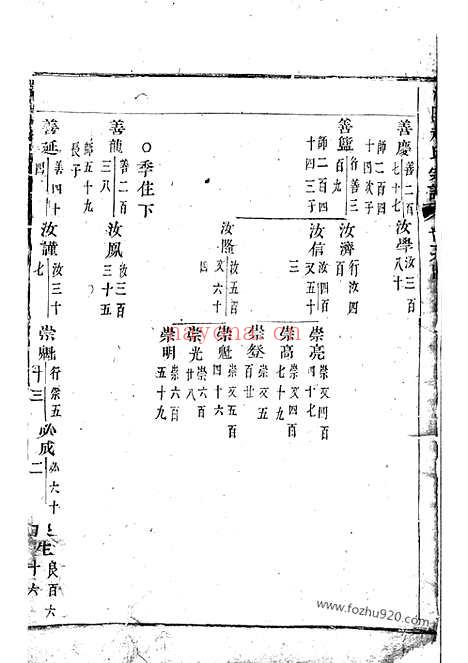 善慶 善二百七十七 師二百四十四次子
汝學 汝三百八十
善鑑 行善三百九 師二百四十四三子
汝濟 行汝四百
汝信 汝四百又五十三
崇亮 崇又四百四十七
崇高 崇又四百七十九
崇發 崇又五百廿
汝隆 汝五百又六十四
崇魁 崇又五百四十六
崇光 崇六百廿八
崇明 崇六百五十九
○季住下
善龍 善二百三八 師五十九長子
汝鳳 汝三百三十五
善延 善四十四
汝謹 汝三十七
崇魁 行崇五十三
必成 必六十二
生 良百六十六
nayona.cn
www.fozhu920.com